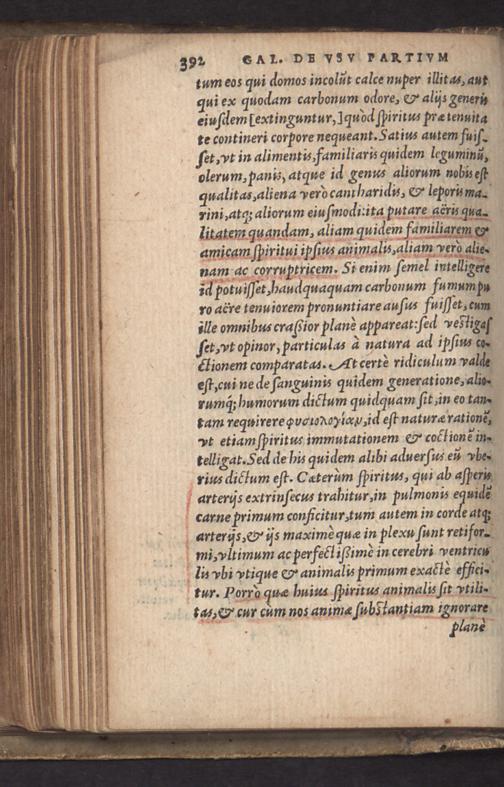 392 GAL. DE VSV PARTIVM
tum eos qui domos incolūt calce nuper illitas, aut
qui ex quodam carbonum odore, & alijs generis
eiusdem [extinguntur,] quòd spiritus præ tenuita
te contineri corpore nequeant. Satius autem fuis-
set, vt in alimentis, familiaris quidem leguminū,
olerum, panis, atque id genus aliorum nobis est
qualitas, aliena verò cantharidis, & leporis ma-
rini, atq; aliorum eiusmodi: ita putare aëris qua-
litatem quandam, aliam quidem familiarem &
amicam spiritui ipsius animalis, aliam verò alie-
nam ac corruptricem. Si enim semel intelligere
id potuisset, haudquaquam carbonum fumum pu
ro aëre tenuiorem pronuntiare ausus fuisset, cum
ille omnibus crassior planè appareat: sed vestigas
set, vt opinor, particulas à natura ad ipsius co-
ctionem comparatas. At certè ridiculum valde
est, cui ne de sanguinis quidem generatione, alio-
rumq; humorum dictum quidquam sit, in eo tan-
tam requirere φυσιολογίαν, id est naturæ rationē,
vt etiam spiritus immutationem & coctionē in-
telligat. Sed de his quidem alibi aduersus eū vbe-
rius dictum est. Cæterùm spiritus, qui ab asperis
arterijs extrinsecus trahitur, in pulmonis equidē
carne primum conficitur, tum autem in corde atq;
arterijs, & ijs maximè quæ in plexu sunt retifor-
mi, vltimum ac perfectissimè in cerebri ventricu
lis vbi vtique & animalis primum exactè effici-
tur. Porrò quæ huius spiritus animalis sit vtili-
tas, & cur cùm nos animæ substantiam ignorare
planè